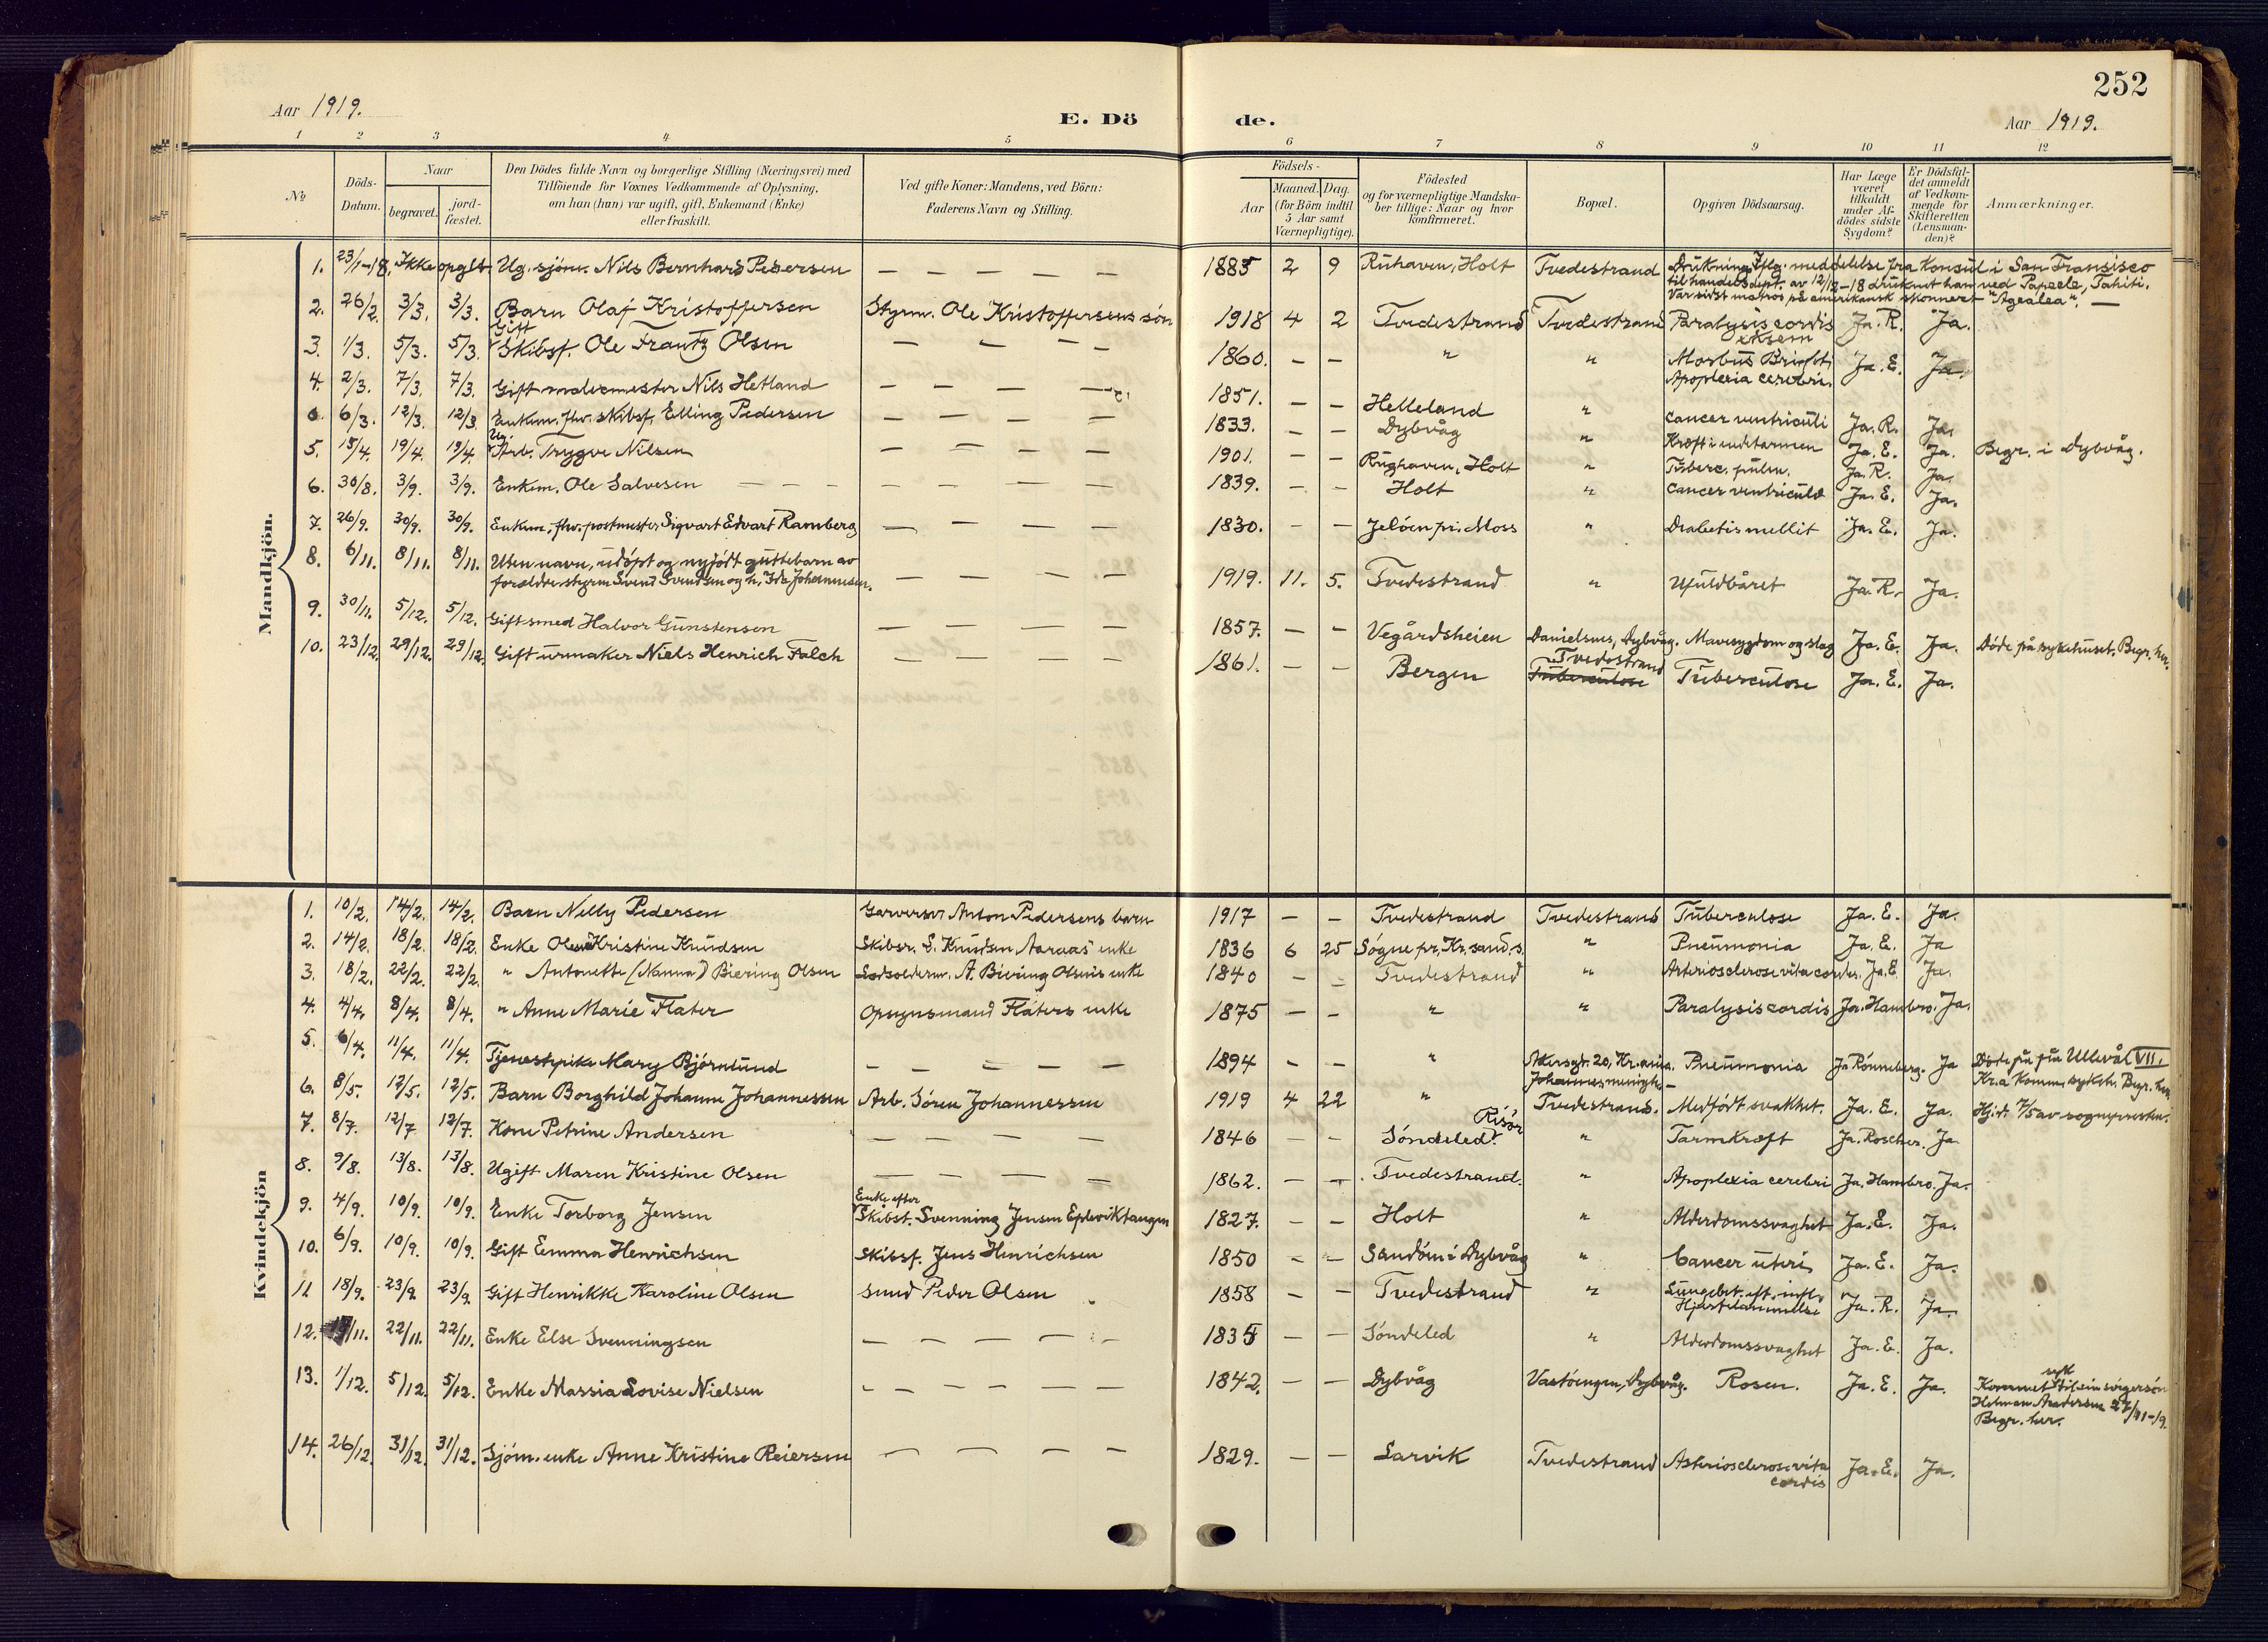 252
Aar 1919.
E. Dö de.
Aar 1919.
1 2 3 4 5 6 7 8 9 10 11 12
No
Döds-Datum.
Naar
begravet.
jord-fæstet.
Den Dödes fulde Navn og borgerlige Stilling (Næringsvei) med
Tilföiende for Voxnes Vedkommende af Oplysning,
om han (hun) var ugift, gift, Enkemand (Enke)
eller fraskilt.
Ved gifte Koner: Mandens, ved Börn:
Faderens Navn og Stilling.
Födsels-
Aar
Maaned. Dag.
(for Börn indtil
5 Aar samt
Værnepligtige).
Födested
og for værnepligtige Mandska-
ber tillige: Naar og hvor
konfirmeret.
Bopæl.
Opgiven Dödsaarsag.
Har Læge
været
tilkaldt
under Af-
dödes sidste
Sygdom?
Er Dödsfal-
det anmeldt
af Vedkom-
mende for
Skifteretten
(Lensman-
den)?
Anmærkninger.
Mandkjön.
1. 23/1-18. Ikke opgit. Ug. sjøm. Nils Bernhard Pedersen — — — — 1885 2 9 Ruhaven, Holt Tvedestrand Drukning. Iflg. meddelelse fra Konsul i San Fransisco
til handelsdept. av 12/12-18 druknet han ved Papeete, Tahiti.
Var sidst matros på amerikansk skonnert "Agealea". —
2. 26/2. 3/3. 3/3. Barn Olaf Kristoffersen Styrm. Ole Kristoffersens søn 1918 4 2 Tvedestrand Tvedestrand Paralysis cordis Ja. R. Ja.
Eksem
3. 1/3. 5/3. 5/3. Gift Skibsf. Ole Frantz Olsen — — — — 1860. — — " " Morbus Brighti Ja. E. Ja.
Apoplexia cerebri.
4. 2/3. 7/3. 7/3. Gift malermester Nils Hetland — — — — 1851. — — Helleland " Cancer ventriculi Ja. R. Ja.
0. 6/3. 12/3. 12/3. Enkem. fhv. skibsf. Elling Pedersen — — — — 1833. — — Dybvåg " Kræft i endetarmen Ja. E. Ja. Begr. i Dybvåg.
5. 15/4. 19/4. 19/4. Ug. Arb. Trygve Nilsen — — — — 1901. — — Rughaven, Holt " Tuberc. pulm. Ja. R. Ja.
6. 30/8. 3/9. 3/9. Enkem. Ole Salvesen — — — — 1839. — — Holt " Cancer ventriculi Ja. E. Ja.
7. 26/9. 30/9. 30/9. Enkem. fhv. postmester Sigvart Edvart Ramberg — — — — 1830. — — Jeløen pr. Moss " Diabetis mellit Ja. E. Ja.
8. 6/11. 8/11. 8/11. Uten navn, udøpt og nyfødt guttebarn av
forældre styrm Svend Svendsen og h. Ida Johannesen. — — — — 1919. 11. 5. Tvedestrand " Ufuldbåret Ja. R. Ja.
9. 30/11. 5/12. 5/12. Gift smed Halvor Gunstensen — — — — 1857. — — Vegårdsheien Danielsnes, Dybvåg. Mavesygdom og slag Ja. E. Ja. Døde på sykehuset. Begr. her.
10. 23/12. 29/12. 29/12. Gift urmaker Niels Henrich Falch — — — — 1861. — — Bergen Tvedestrand Tuberculose Tuberculose Ja. E. Ja.
Kvindekjön
1. 10/2. 14/2. 14/2. Barn Nelly Pedersen Garversv. Anton Pedersens barn 1917 — — Tvedestrand Tvedestrand Tuberculose Ja. E. Ja.
2. 14/2. 18/2. 18/2. Enke Kristine Knudsen Skibsr. S. Knudsen Aaraas' enke 1836 6 25 Søgne pr. Kr.sand.s. " Pneumonia Ja. E. Ja
3. 18/2. 22/2. 22/2. " Antonette (Nanna) Biering Olsen Lodsolderm. A. Biering Olsens enke 1840 — — Tvedestrand " Arteriosclerose vita cordis. Ja. E. Ja.
4. 4/4. 8/4. 8/4. " Anne Marie Flater Opsynsmand Flaters enke 1875 — — " " Paralysis cordis Ja. Hambro. Ja.
5. 6/4. 11/4. 11/4. Tjenestpike Mary Bjørnlund — — — — 1894 — — " Akersgt. 20, Kr.ania. Pneumonia Ja Rønneberg. Ja Døde på Ullevål VII,
Johannes menigh. — Kr.a Komm. sykeh. Begr. her.
6. 8/5. 12/5. 12/5. Barn Borghild Johanne Johannessen Arb. Søren Johannessen 1919 4 22 " Tvedestrand. Medfødt svakhet. Ja. E. Ja. Hj.d. 7/5 av sognepresten.
7. 8/7. 12/7 12/7. Kone Petrine Andersen — — — — 1846 — — Søndeled. Risør " Tarmkræft Ja. Roscher. Ja
8. 9/8. 13/8. 13/8. Ugift Maren Kristine Olsen — — — — 1862. — — Tvedestrand. " Apoplexia cerebri Ja. Hambro. Ja.
9. 4/9. 10/9. 10/9. Enke Torborg Jensen Enke efter Skibsf. Svenning Jensen Epleviktangen 1827. — — Holt " Alderdomssvaghet Ja. E. Ja.
10. 6/9. 10/9. 10/9. Gift Emma Henrichsen Skibsf. Jens Henrichsen 1850 — — Sandøen i Dybvåg " Cancer uteri Ja. E. Ja.
11 18/9. 23/9. 23/9. Gift Henrikke Karoline Olsen smed Peder Olsen 1858 — — Tvedestrand " Lungebet. eft. infl. Ja. R. Ja.
Hjertelammelse
12. /11. 22/11. 22/11. Enke Else Svenningsen — — — — 1834 — — Søndeled " Alderdomssvaghet Ja. E. Ja.
13. 1/12. 5/12. 5/12. Enke Massia Lovise Nielsen — — — — 1842. — — Dybvåg Vastøengen, Dybvåg. Rosen. Ja. E. Ja. Kommet syk til sin svigersøn
Helman Andersen 27/11-19.
Begr. her.
14. 26/12. 31/12. 31/12. Sjøm. enke Anne Kristine Reiersen — — — — 1829. — — Larvik Tvedestrand Arteriosclerose vita
cordis Ja. E. Ja.